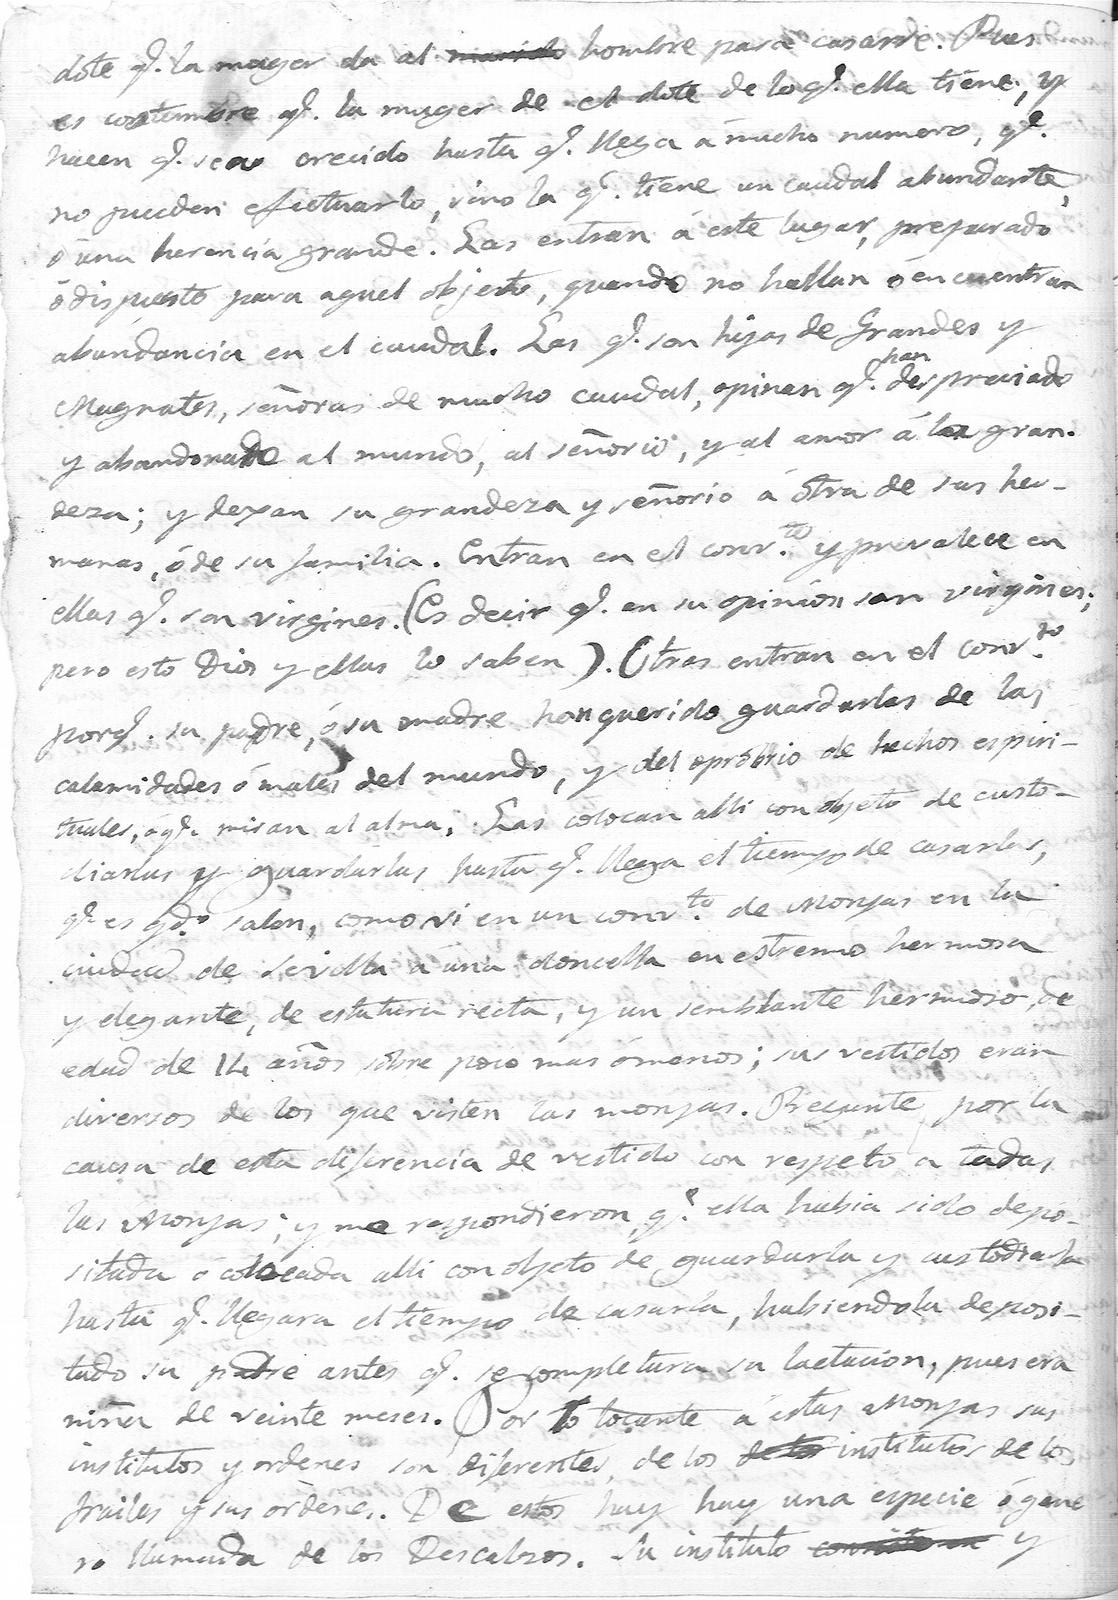 dote q.e la muger da al marido hombre para casarse. Pues
es costumbre q.e la muger de el dote de lo q.e ella tiene, y
hacen q.e sea crecido hasta q.e llega a mucho numero, q.e
no pueden efectuarlo, sino la q.e tiene un caudal abundante,
ó una herencia grande. Las entran á este lugar, preparado
ó dispuesto para aquel objeto, quando no hallan ó encuentran
abundancia en el caudal. Las q.e son hijas de Grandes y
Magnates, señoras de mucho caudal, opinan q.e han despreciado
y abandonado al mundo, al señorio, y al amor á la gran-
deza; y dexan su grandeza y señorio á otra de sus her-
manas, ó de su familia. Entran en el conv.to y prevalece en
ellas q.e son virgines. (Es decir q.e en su opinion son virgines;
pero esto Dios y ellas lo saben). Otras entran en el conv.to
porq.e su padre, ó su madre han querido guardarlas de las
calamidades ó males del mundo, y del oprobrio de hechos espiri-
tuales, ó q.e miran al alma. Las colocan alli con objeto de custo-
diarlas y guardarlas hasta q.e llega el tiempo de casarlas,
q.e es q.do salen, como vi en un conv.to de Monjas en la
ciudad de Sevilla á una doncella en estremo hermosa
y elegante, de estatura recta, y un semblante hermoso, de
edad de 14 años sobre poco mas ó menos; sus vestidos eran
diversos de los que visten las monjas. Pregunté por la
causa de esta diferencia de vestido con respeto a todas
las Monjas; y me respondieron, q.e ella habia sido depo-
sitada ó colocada alli con objeto de guardarla y custodiarla
hasta q.e llegara el tiempo de casarla, habiendola deposi-
tado su padre antes q.e se completara su lactacion, pues era
niña de veinte meses. Por lo tocante á estas Monjas sus
institutos y ordenes son diferentes, de los de los institutos de los
frailes y sus ordenes. De estos hay hay una especie ó gene
ro llamada de los Descalzos. Su instituto y